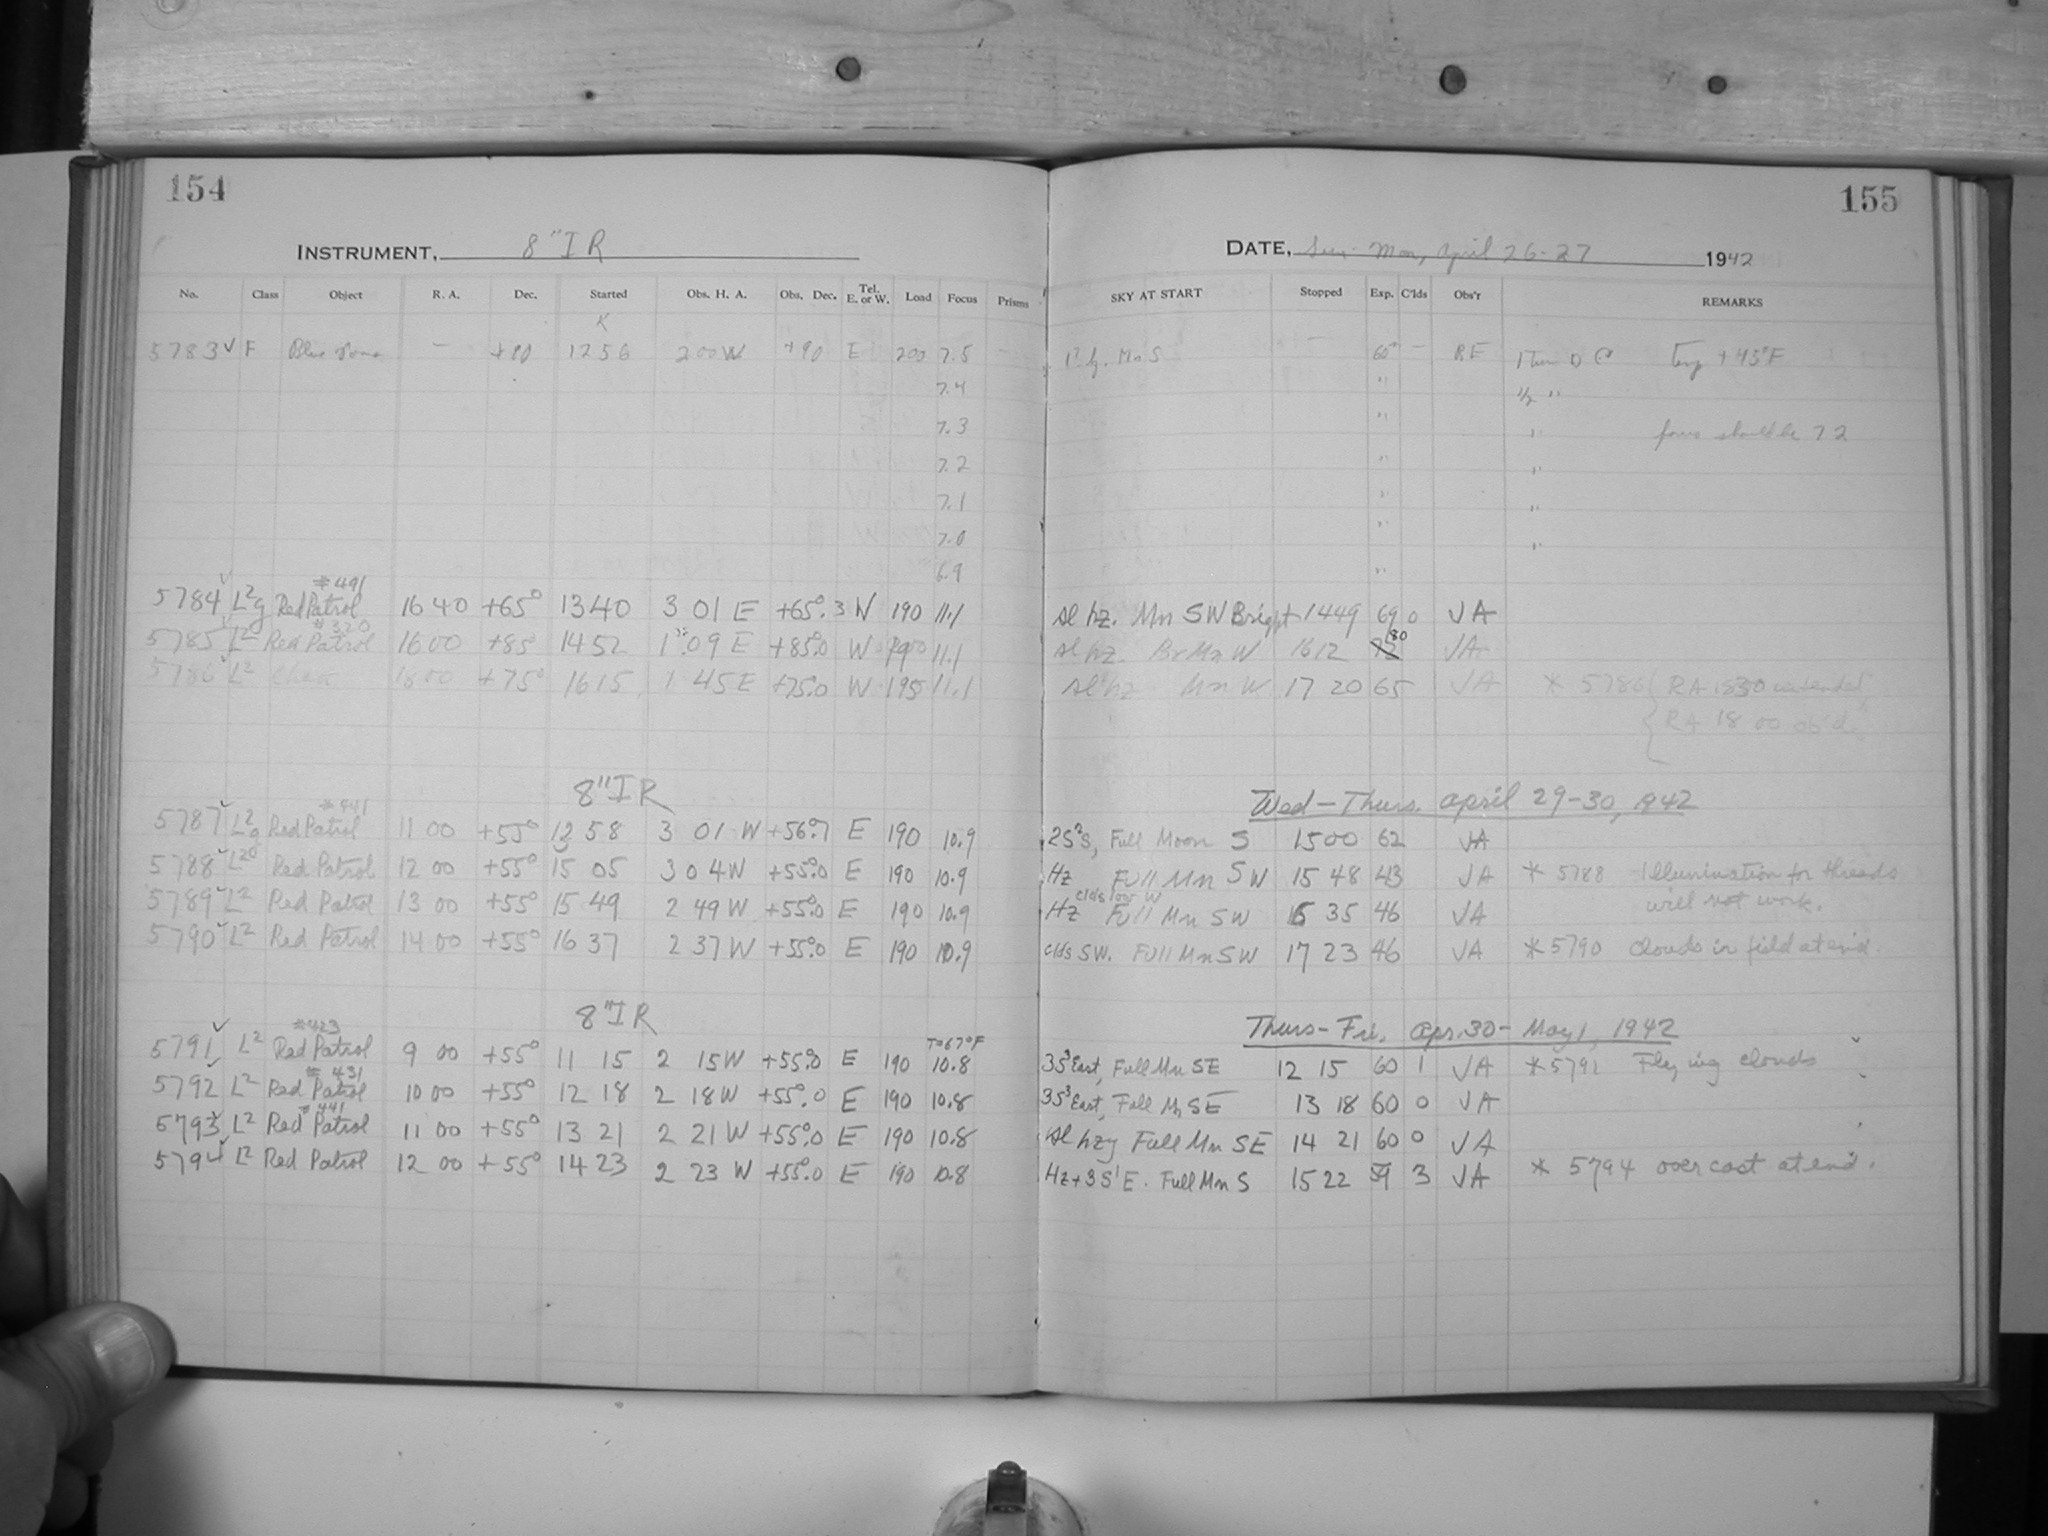 154
155
INSTRUMENT, 8" I R
DATE, Sun - Mon, April 26-27 1942
No. Class Object R. A. Dec. Started Obs. H. A. Obs. Dec. Tel. E. or W. Load Focus Prisms SKY AT START Stopped Exp. C'lds Obs'r REMARKS
K
5783 ✓ F Blue +90 1256 200 W +90 E 200 7.5 — Mn S — 60s — RE Temp + 45°F
7.4 " 1/2 "
7.3 " " focus should be 7.2
7.2 " "
7.1 " "
7.0 " "
6.9 "
#491
5784 ✓ L2g Red Patrol 16 40 +65° 1340 3 01 E +65°.3 W 190 11.1 sl hz. Mn SW Bright 1449 69 0 VA
#320
5785 ✓ L2 Red Patrol 16 00 +85° 1452 1 09 E +85.0 W 190 11.1 sl hz Br Mn W 1612 80 VA
5786 ✓ L2 18 00 +75° 1615 1 45 E +75.0 W 195 11.1 sl hz Mn W 17 20 65 VA * 5786 { RA 1830 intended
{ RA 18 00 obs'd.
8" I R
Wed - Thurs. April 29-30, 1942
#441
5787 ✓ L2g Red Patrol 11 00 +55° 12 58 3 01 W +56°.7 E 190 10.9 2S2S, Full Moon S 1500 62 VA
5788 ✓ L2 Red Patrol 12 00 +55° 15 05 3 04 W +55.0 E 190 10.9 Hz Full Mn SW 15 48 43 VA * 5788 Illumination for threads
will not work.
clds low W
5789 ✓ L2 Red Patrol 13 00 +55° 15 49 2 49 W +55.0 E 190 10.9 Hz Full Mn SW 16 35 46 VA
5790 ✓ L2 Red Patrol 14 00 +55° 16 37 2 37 W +55.0 E 190 10.9 clds SW. Full Mn SW 17 23 46 VA * 5790 Clouds in field at end.
8" I R
Thurs - Fri. Apr. 30 - May 1, 1942
#423 T=67°F
5791 ✓ L2 Red Patrol 9 00 +55° 11 15 2 15 W +55.0 E 190 10.8 3S3 East, Full Mn SE 12 15 60 1 VA * 5791 Flying clouds
# 431
5792 ✓ L2 Red Patrol 10 00 +55° 12 18 2 18 W +55.0 E 190 10.8 3S3 East, Full Mn SE 13 18 60 0 VA
#441
5793 ✓ L2 Red Patrol 11 00 +55° 13 21 2 21 W +55.0 E 190 10.8 sl hzy Full Mn SE 14 21 60 0 VA
5794 ✓ L2 Red Patrol 12 00 +55° 14 23 2 23 W +55.0 E 190 10.8 Hz + 3 S1 E. Full Mn S 15 22 59 3 VA * 5794 overcast at end.